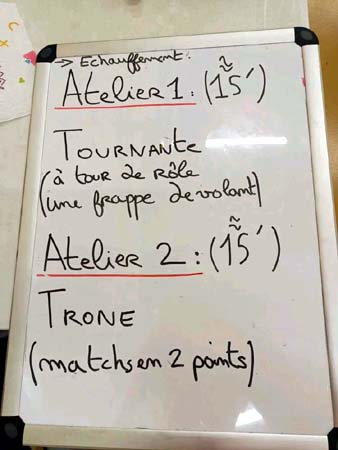 → Echauffement:
Atelier 1: (≈15')
TOURNANTE
(à tour de rôle
(une frappe de volant)
Atelier 2: (≈15')
TRONE
(matchs en 2 points)